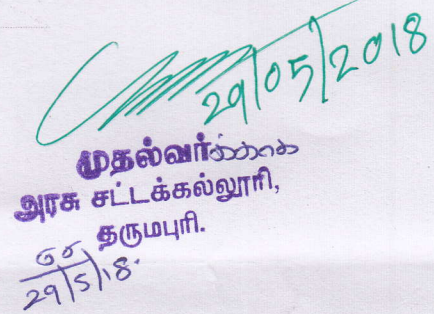 29/05/2018
முதல்வர்க்காக
அரசு சட்டக்கல்லூரி,
தருமபுரி.
29/5/18.